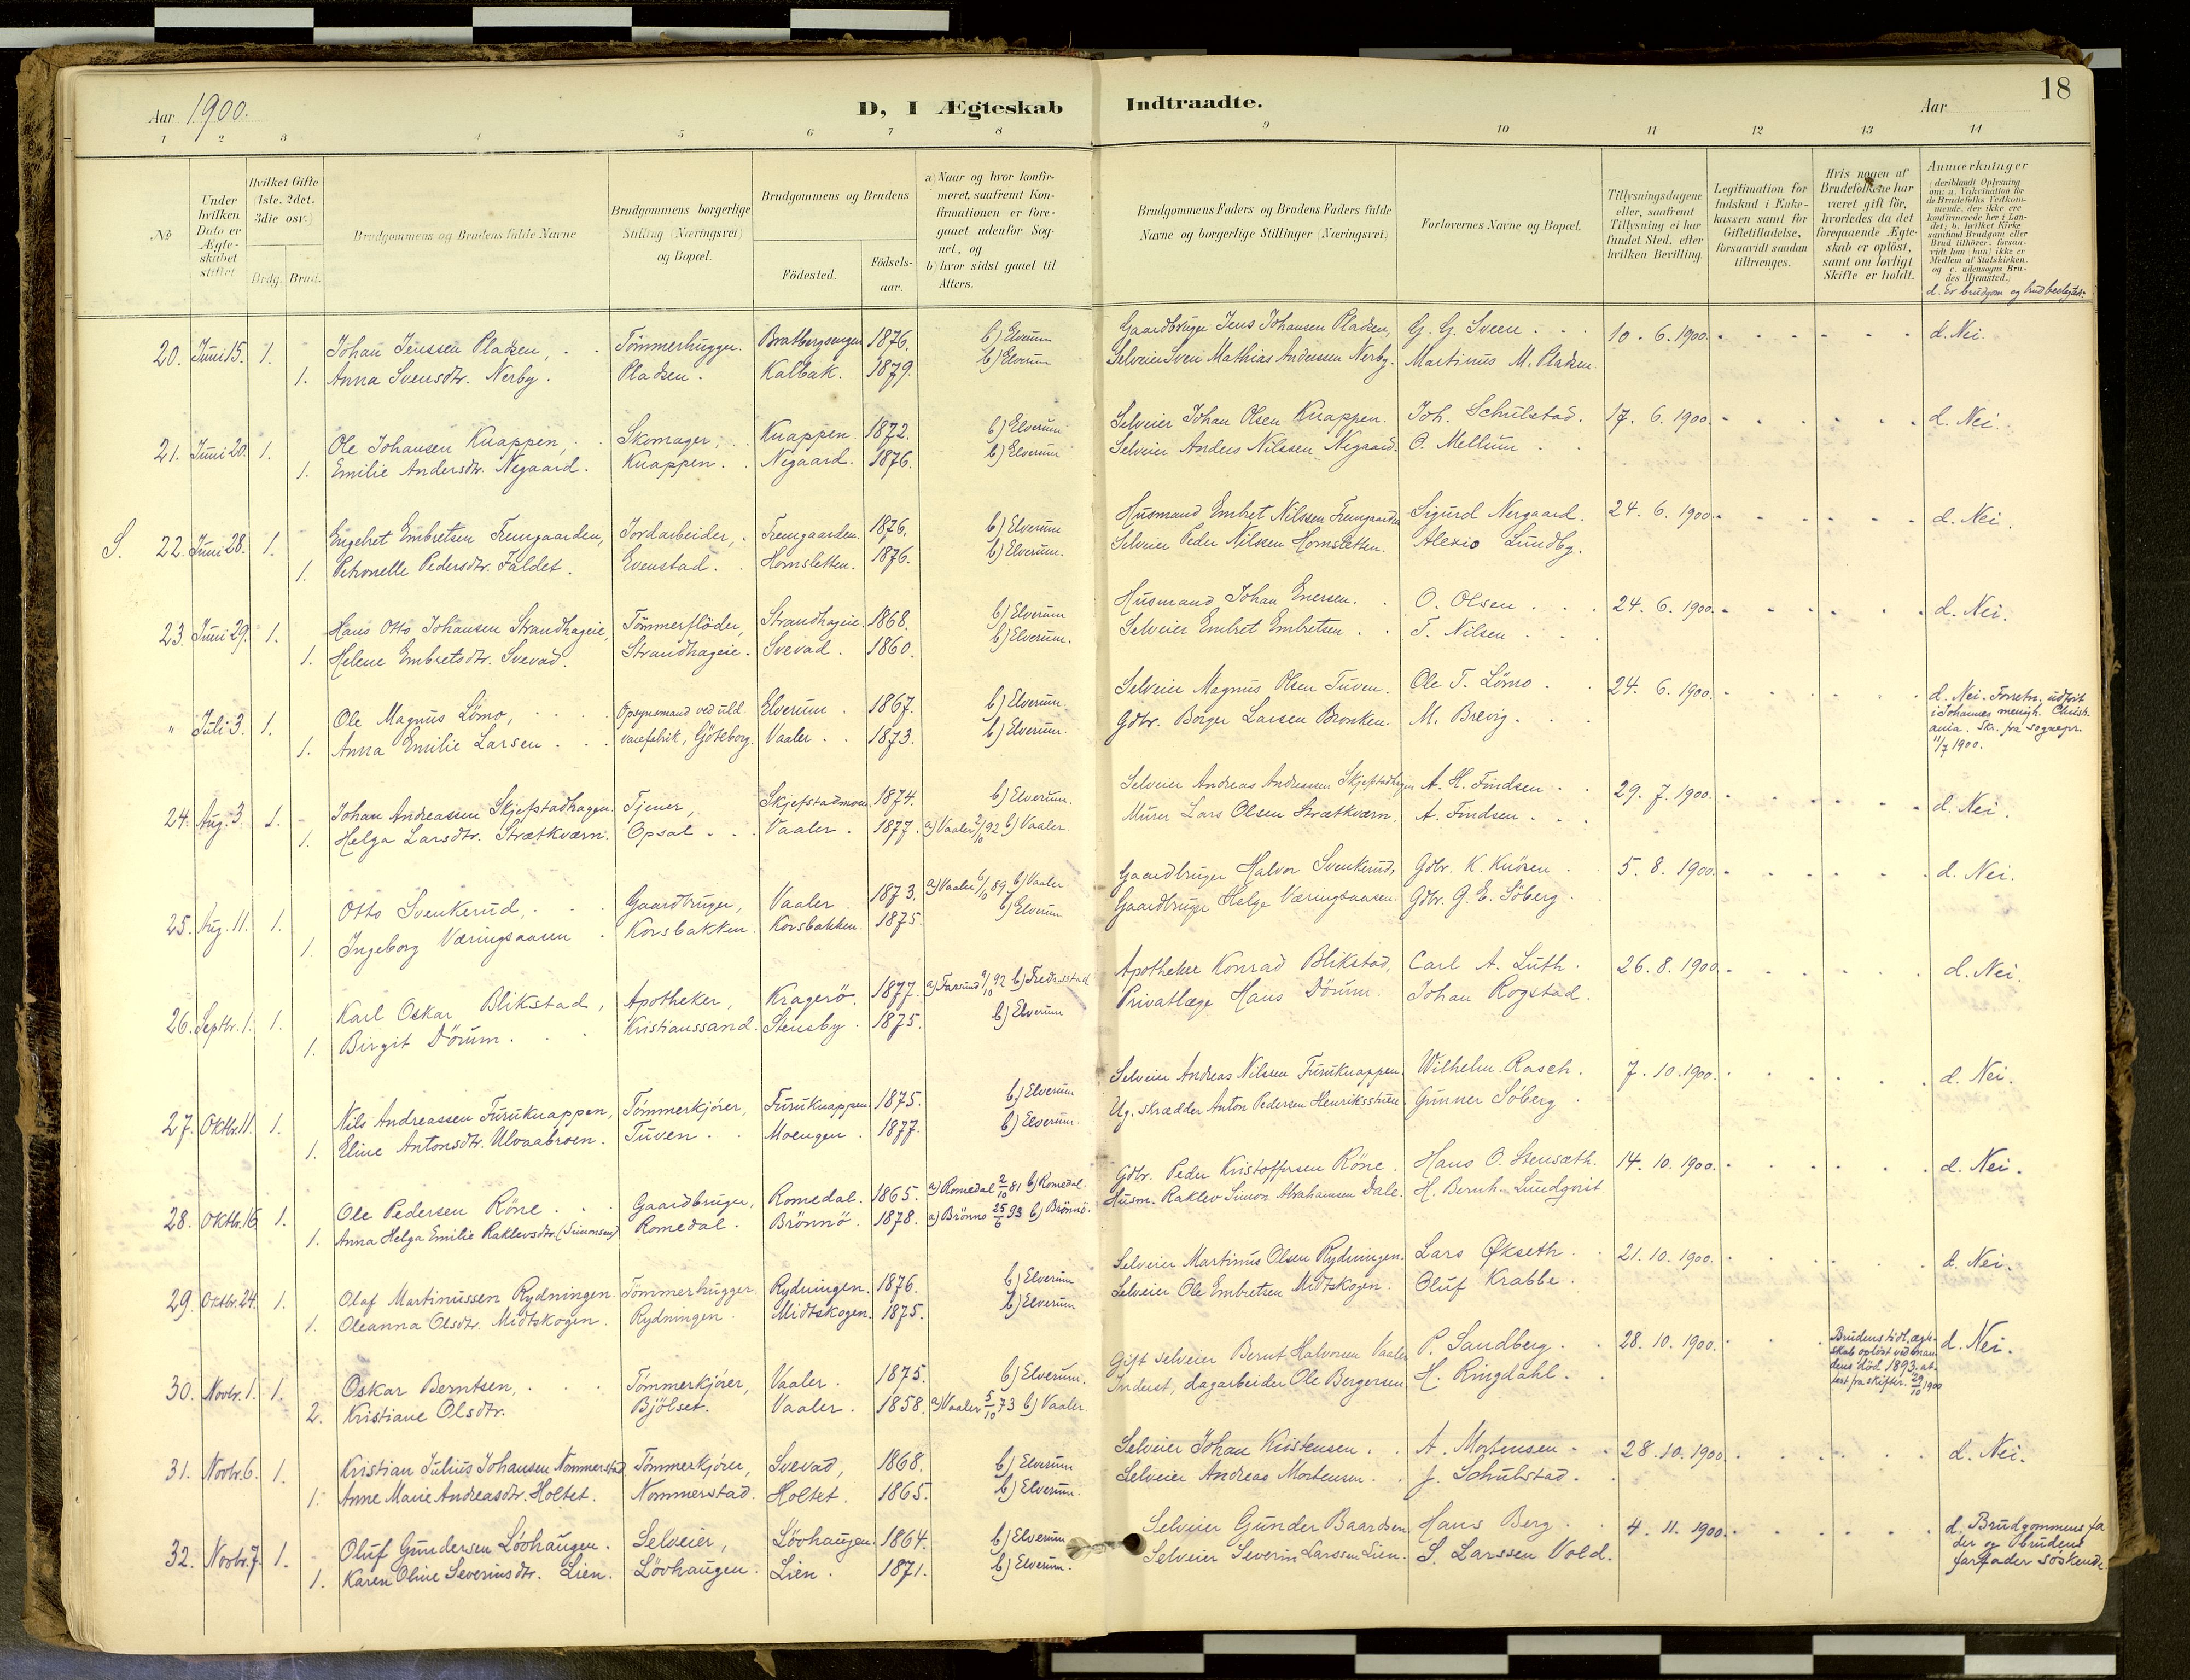 18
Aar 1900.
D, I Ægteskab Indtraadte.
Aar
1 2 3 4 5 6 7 8 9 10 11 12 13 14
№
Under hvilken Dato er Ægteskabet stiftet
Hvilket Gifte (1ste. 2det. 3die osv.)
Brdg. Brud.
Brudgommens og Brudens fulde Navne
Brudgommens borgerlige Stilling (Næringsvei) og Bopæl.
Brudgommens og Brudens
Födested.
Födsels-aar.
a) Naar og hvor konfirmeret, saafremt Konfirmationen er foregaaet udenfor Sognet, og
b) hvor sidst gaaet til Alters.
Brudgommens Faders og Brudens Faders fulde Navne og borgerlige Stillinger (Næringsvei)
Forlovernes Navne og Bopæl.
Tillysningsdagene eller, saafremt Tillysning ei har fundet Sted, efter hvilken Bevilling.
Legitimation for Indskud i Enkekassen samt for Giftetilladelse, forsaavidt saadan tiltrænges.
Hvis nogen af Brudefolkene har været gift för, hvorledes da det foregaaende Ægteskab er oplöst, samt om lovligt Skifte er holdt.
Anmærkninger
(deriblandt Oplysning om: a. Vakcination for de Brudefolks Vedkommende, der ikke ere konfirmerede her i Landet; b. hvilket Kirkesamfund Brudgom eller Brud tilhörer, forsaavidt han (hun) ikke er Medlem af Statskirken, og c. udensogns Brudes Hjemsted.)
d. Er brudgom og brud beslægtede
20. Juni 15. 1. Johan Jenssen Pladsen, Tömmerhugger. Bratbergsengen 1876. b) Elverum Gaardbruger Jens Johansen Pladsen, G. G. Sveen 10. 6. 1900. d. Nei.
1. Anna Svensdtr. Nerby. Pladsen. Kalbak. 1879. b) Elverum Selveier Sven Mathias Andersen Nerby. Martinus M. Pladsen.
21. Juni 20. 1. Ole Johansen Knappen, Skomager, Knappen. 1872. b) Elverum Selveier Johan Olsen Knappen. Joh. Schulstad. 17. 6. 1900. d. Nei.
1. Emilie Andersdtr. Negaard. Knappen. Negaard. 1876. b) Elverum Selveier Anders Nilssen Negaard. O. Mellum
S. 22. Juni 28. 1. Engebret Embretsen Fremgaarden, Jordarbeider, Fremgaarden. 1876. b) Elverum Husmand Embret Nilssen Fremgaarden Sigurd Nergaard. 24. 6. 1900. d. Nei.
1. Petronelle Pedersdtr. Faldet. Evenstad. Hornsletten. 1876. b) Elverum. Selveier Peder Nilssen Hornsletten. Alexio Lundby.
23. Juni 29. 1. Hans Otto Johansen Strandhageie, Tömmerflöder, Strandhageie. 1868. b) Elverum Husmand Johan Enersen. O. Olsen 24. 6. 1900. d. Nei.
1. Helene Embretsdtr. Svevad. Strandhageie. Svevad. 1860. b) Elverum. Selveier Embret Embretsen T. Nilsen
" Juli 3. 1. Ole Magnus Lömo, Opsynsmand ved uld Elverum. 1867. b) Elverum. Selveier Magnus Olsen Tuven. Ole T. Lömo 24. 6. 1900. d. Nei. Forretn. udført i Johannes menigh. Christiania. Skr. fra sognepr. 11/7 1900.
1. Anna Emilie Larsen varefabrik, Göteborg. Vaaler. 1873. b) Elverum. Gdbr. Borger Larsen Bronken. M. Brevig.
24. Aug. 3. 1. Johan Andreassen Skjefstadhagen. Tjener, Skjefstadmoen 1874. b) Elverum. Selveier Andreas Andreassen Skjefstadhagen A. H. Findsen 29. 7. 1900. d. Nei.
1. Helga Larsdtr. Strætkværn. Opsal. Vaaler. 1877. a) Vaaler 2/10 92 b) Vaaler Murer Lars Olsen Strætkværn. A. Findsen
25. Aug. 11. 1. Otto Svenkerud, Gaardbruger, Vaaler. 1873. a) Vaaler 6/10 89 b) Vaaler Gaardbruger Halvor Svenkerud, Gdbr. K. Knösen 5. 8. 1900. d. Nei.
1. Ingeborg Væringsaasen Korsbakken. Korsbakken. 1875. b) Elverum Gaardbruger Helge Væringsaasen. Gdbr. G. E. Söberg.
26. Septbr. 1. 1. Karl Oskar Blikstad, Apotheker, Kragerö. 1877. a) Farsund 9/10 92 b) Fredr.sstad Apotheker Konrad Blikstad, Carl A. Luth. 26. 8. 1900. d. Nei.
1. Birgit Dörum. Kristianssand. Stensby. 1875. b) Elverum Privatlæge Hans Dörum. Johan Rogstad.
27. Oktbr. 11. 1. Nils Andreassen Furuknappen, Tömmerkjörer, Furuknappen. 1875. b) Elverum Selveier Andreas Nilssen Furuknappen. Wilhelm Rasch. 7. 10. 1900. d. Nei.
1. Eline Antonsdtr. Ulvaabroen. Tuven. Moengen. 1877. b) Elverum. Ug. skrædder Anton Pedersen Henriksstuen. Gunner Söberg
28. Oktbr. 16 1. Ole Pedersen Röne Gaardbruger, Romedal. 1865. a) Romedal 2/10 81 b) Romedal. Gdbr. Peder Kristoffersen Röne. Hans O. Stensæth. 14. 10. 1900. d. Nei.
1. Anna Helga Emilie Raklevsdtr. (Simonsen) Romedal. Brönnö. 1878. a) Brönnö 25/6 93 b) Brönnö. Husm. Raklev Simon Abrahamsen Dale. H. Bernh. Lundqvist
29. Oktbr. 24. 1. Olaf Martinussen Rydningen. Tömmerhugger Rydningen. 1876. b) Elverum Selveier Martinus Olsen Rydningen. Lars Økseth. 21. 10. 1900. d. Nei.
1. Oleanna Olsdtr. Midtskogen. Rydningen. Midtskogen. 1875. b) Elverum Selveier Ole Embretsen Midtskogen. Oluf Krabbe.
30. Novbr. 1. 1. Oskar Berntsen, Tömmerkjörer, Vaaler. 1875. b) Elverum. Gift selveier Bernt Halvorsen Vaaler P. Sandberg. 28. 10. 1900. Brudens tidl. ægteskab oplöst ved mandens död 1893. attest fra skifter. 29/10 1900 d. Nei.
2. Kristiane Olsdtr. Bjölset. Vaaler. 1858. a) Vaaler 5/10 73 b) Vaaler. Inderst, dagarbeider Ole Bergersen H. Ringdahl.
31. Novbr. 6. 1. Kristian Julius Johansen Nommerstad Tömmerkjörer, Svevad, 1868. b) Elverum Selveier Johan Kristensen. A. Mortensen 28. 10. 1900. d. Nei.
1. Anne Marie Andreasdtr. Holtet. Nommerstad. Holtet. 1865. b) Elverum. Selveier Andreas Mortensen. J. Schulstad.
32. Novbr. 7. 1. Oluf Gundersen Lövhaugen. Selveier, Lövhaugen. 1864. b) Elverum Selveier Gunder Baardsen. Hans Berg. 4. 11. 1900. d. Brudgommens fader og brudens farfader söskende
1. Karen Oline Severinsdtr. Lien. Lövhaugen. Lien. 1871. b) Elverum. Selveier Severin Larssen Lien. S. Larssen Vold.